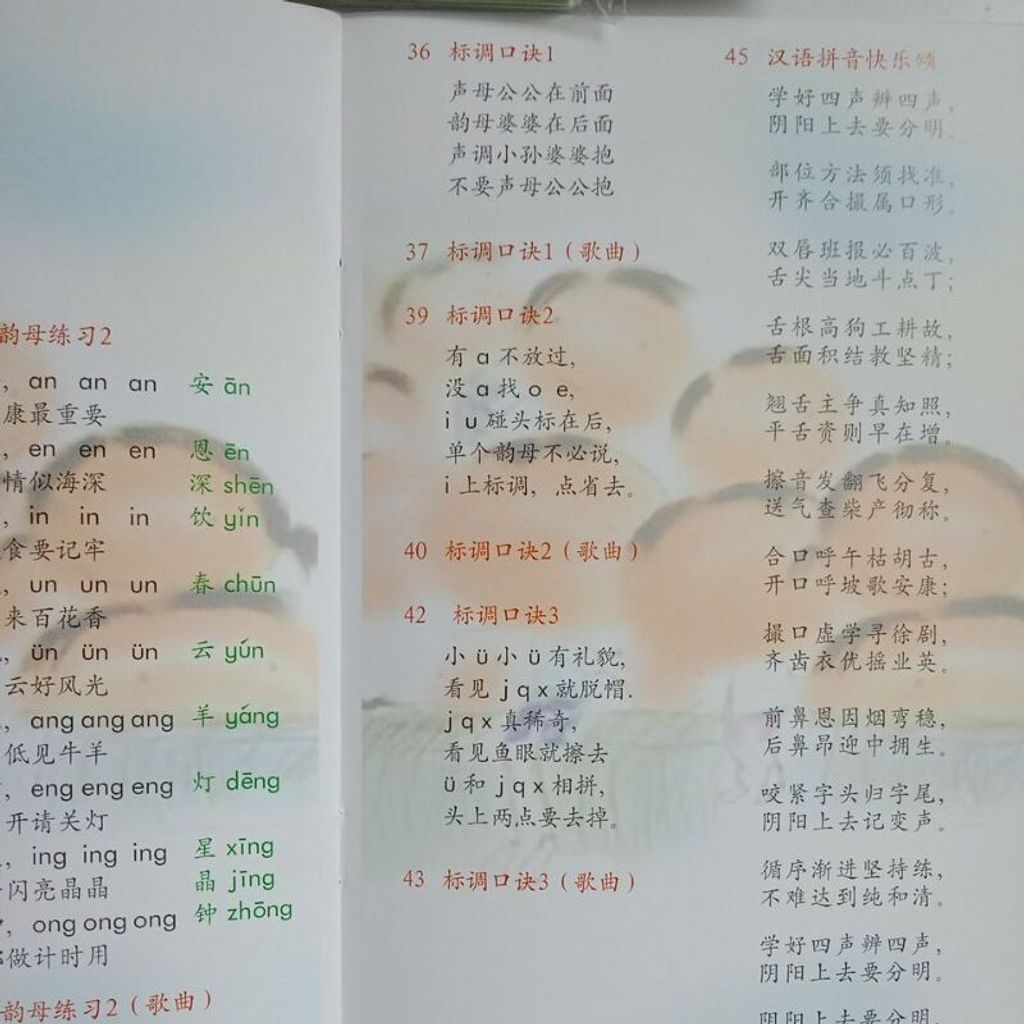 韵母练习2
, an an an 安 ān
康最重要
, en en en 恩 ēn
情似海深 深 shēn
, in in in 饮 yǐn
食要记牢
, un un un 春 chūn
来百花香
, ün ün ün 云 yún
云好风光
, ang ang ang 羊 yáng
低见牛羊
, eng eng eng 灯 dēng
开请关灯
, ing ing ing 星 xīng
闪亮晶晶 晶 jīng
, ong ong ong 钟 zhōng
做计时用
韵母练习2(歌曲)
36 标调口诀1
声母公公在前面
韵母婆婆在后面
声调小孙婆婆抱
不要声母公公抱
37 标调口诀1(歌曲)
39 标调口诀2
有 a 不放过,
没 a 找 o e,
i u 碰头标在后,
单个韵母不必说,
i 上标调, 点省去。
40 标调口诀2(歌曲)
42 标调口诀3
小 ü 小 ü 有礼貌,
看见 j q x 就脱帽.
j q x 真稀奇,
看见鱼眼就擦去
ü 和 j q x 相拼,
头上两点要去掉。
43 标调口诀3(歌曲)
45 汉语拼音快乐颂
学好四声辨四声,
阴阳上去要分明。
部位方法须找准,
开齐合撮属口形。
双唇班报必百波,
舌尖当地斗点丁;
舌根高狗工耕故,
舌面积结教坚精;
翘舌主争真知照,
平舌资则早在增。
擦音发翻飞分复,
送气查柴产彻称。
合口呼午枯胡古,
开口呼坡歌安康;
撮口虚学寻徐剧,
齐齿衣优摇业英。
前鼻恩因烟弯稳,
后鼻昂迎中拥生。
咬紧字头归字尾,
阴阳上去记变声。
循序渐进坚持练,
不难达到纯和清。
学好四声辨四声,
阴阳上去要分明。
阴阳上去要分明。